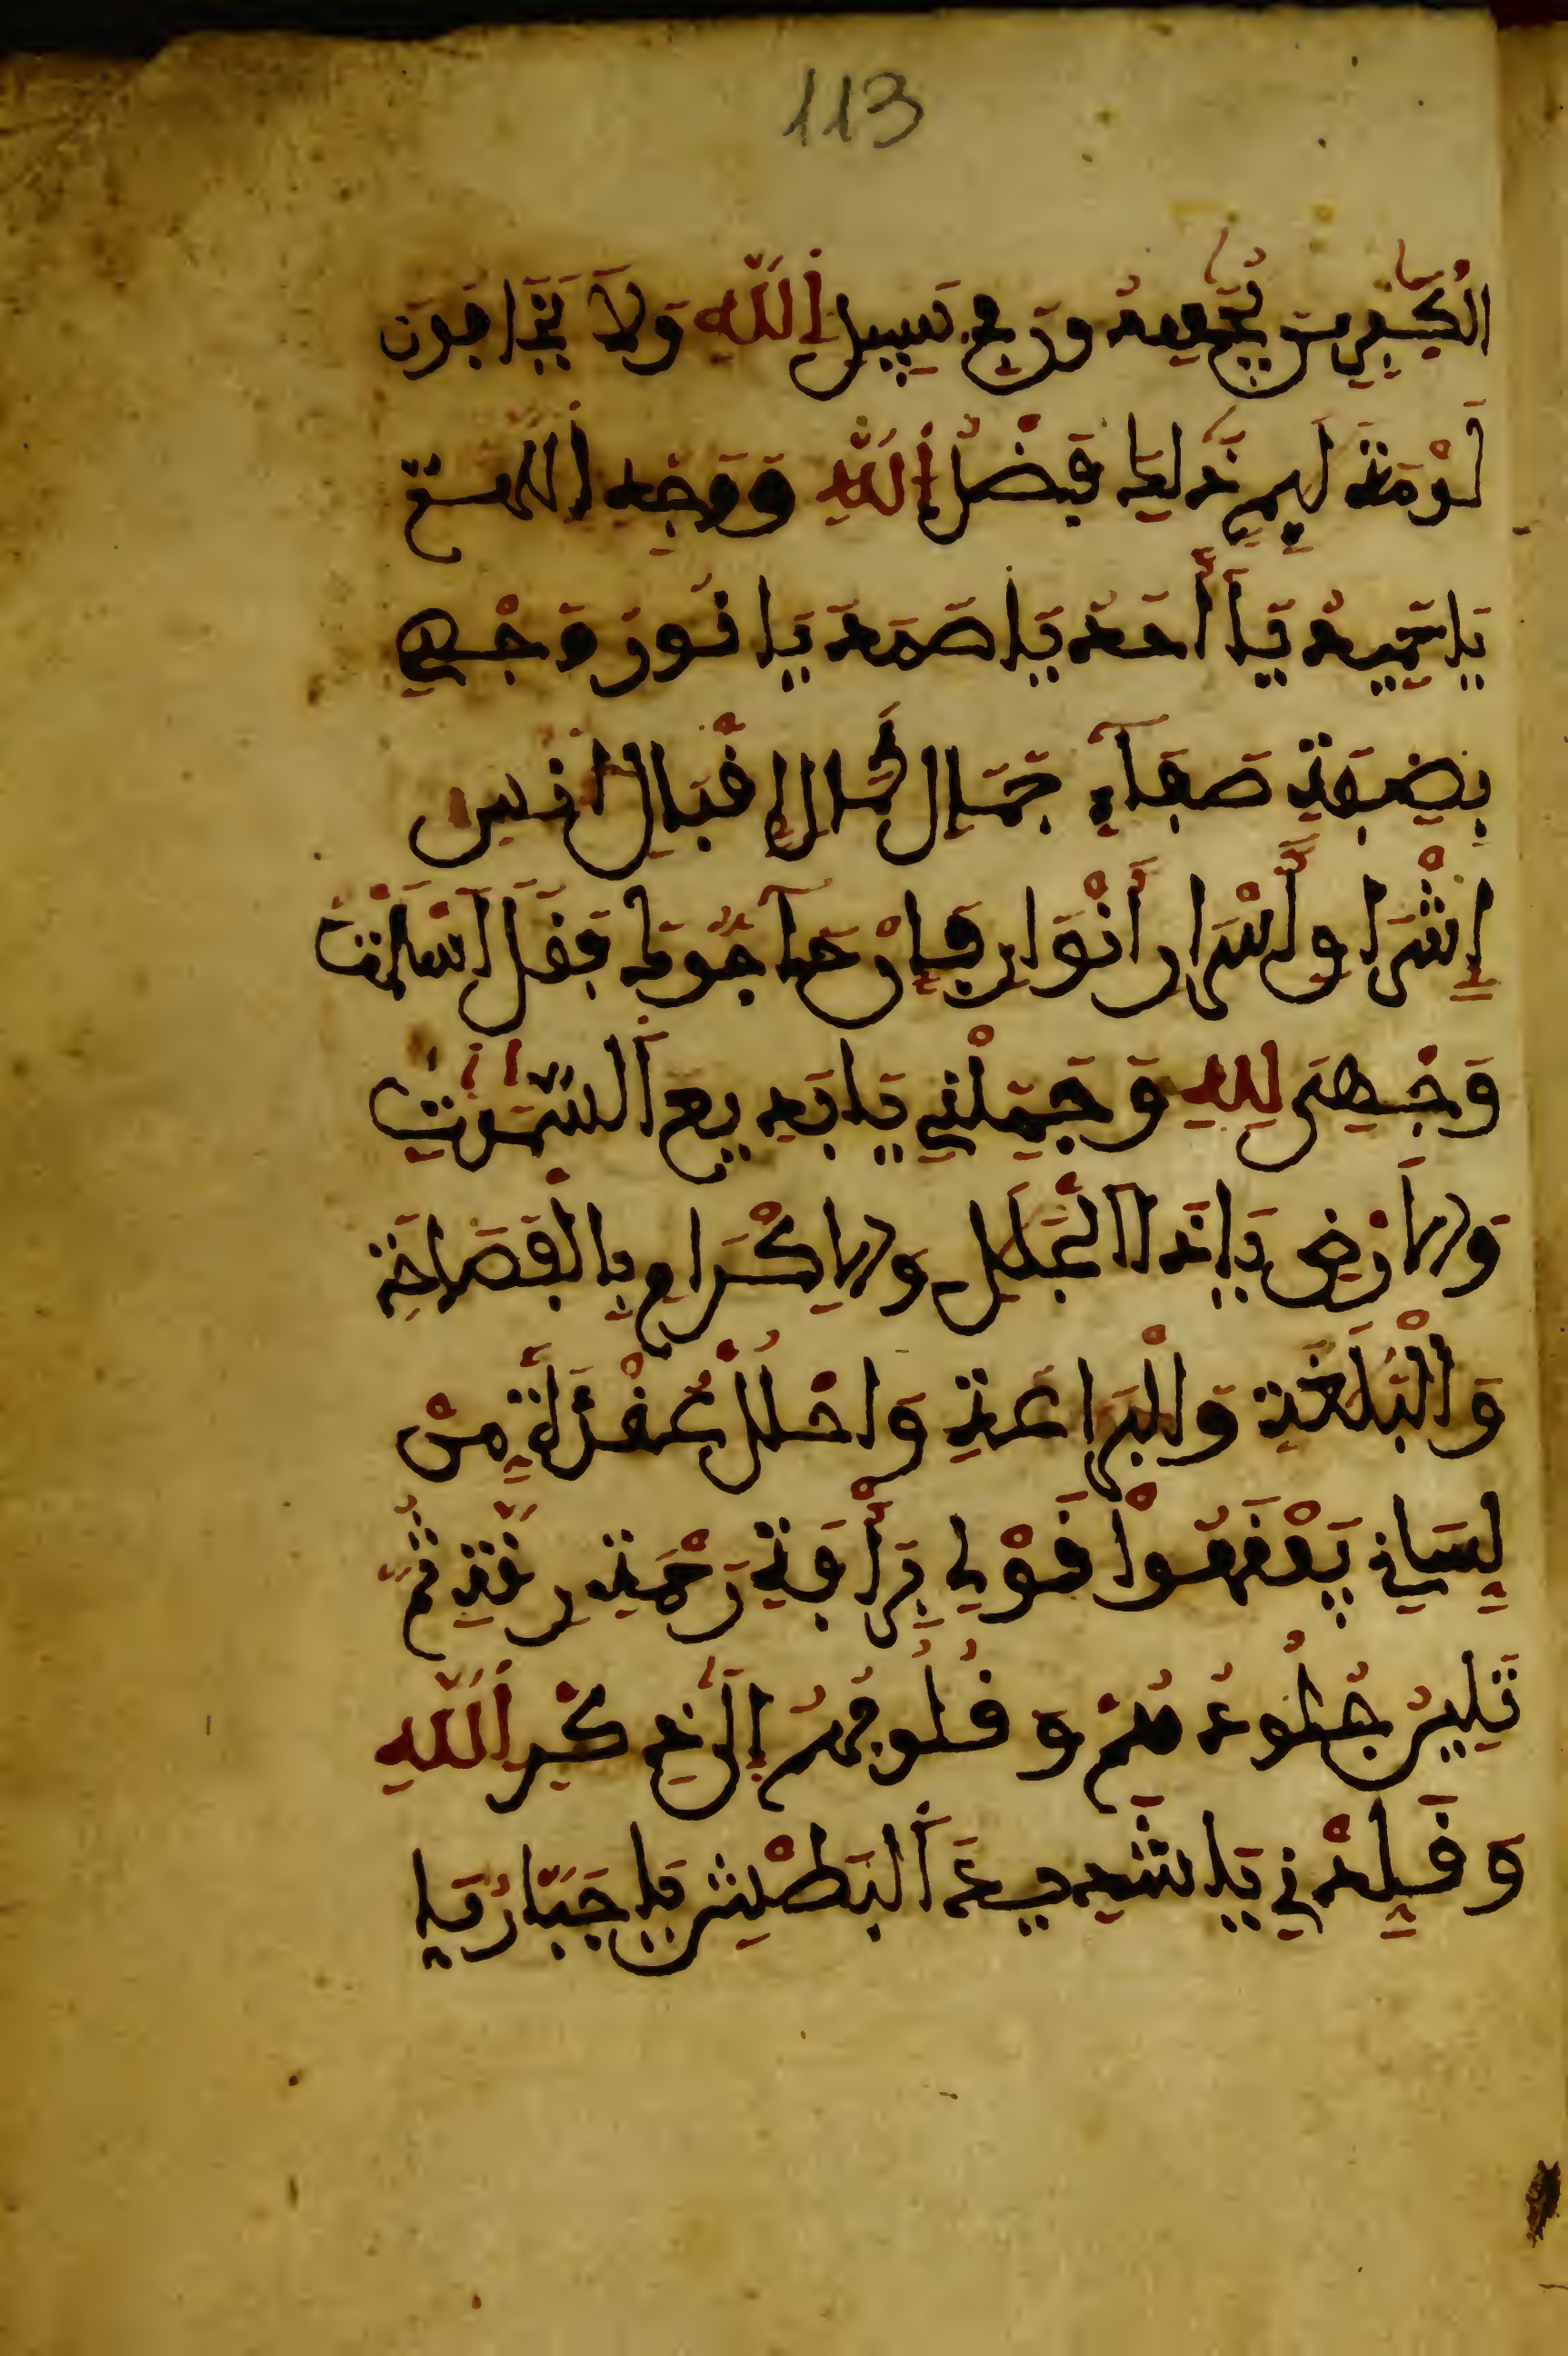 113
الْكٰفِرِينَ يُجٰهِدُونَ فِي سَبِيلِ اللَّهِ وَلَا يَخَافُونَ
لَوْمَةَ لَايِمٍ ذَٰلِكَ فَضْلُ اللَّهِ وَوَجِّه اللهمّ
يَا حَمِيدُ يَا أَحَدُ يَا صَمَدُ يَا نُورُ وَجْهِي
بِصَفَةِ صَفَآءِ جَمَالِ كَمَالِ إِقْبَالِ انس
إِشْرَاقِ أَسْرَارِ أَنْوَارِ فَإِنْ حَآجُّوكَ فَقُلْ أَسْلَمْتُ
وَجْهِيَ لِلهِ وَجَمِّلْنِي يَا بَدِيعَ السَّمٰوٰتِ
وَالْأَرْضِ يَا ذَا الْجَلَٰلِ وَالْإِكْرَامِ بِالْفَصَاحَةِ
وَالْبَلَٰغَةِ وَالْبَرَاعَةِ وَاحْلُلْ عُقْدَةً مِنْ
لِسَانِي يَفْقَهُوا قَوْلِي بِرَأْفَةِ رَحْمَةِ رِقَّةِ ثُمَّ
تَلِينُ جُلُودُهُمْ وَقُلُوبُهُمْ إِلَىٰ ذِكْرِ اللَّهِ
وَقَلِّدْنِي يَا شَدِيدَ الْبَطْشِ يَا جَبَّارُ يَا